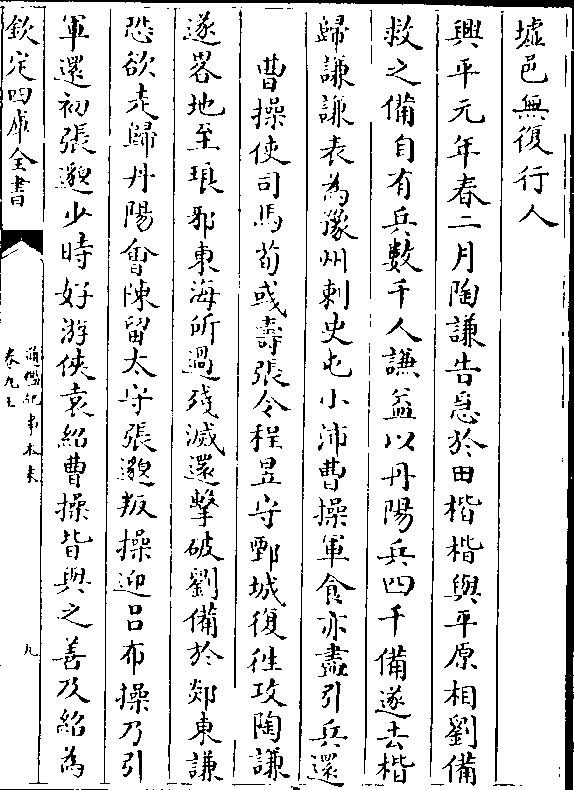 墟邑無復行人
興平元年春二月陶謙告急於田楷楷與平原相劉備
救之備自有兵數千人謙益以丹陽兵四千備遂去楷
歸謙謙表為豫州刺史屯小沛曹操軍食亦盡引兵還
曹操使司馬荀彧壽張令程昱守鄄城復徃攻陶謙
遂畧地至琅邪東海所過殘滅還擊破劉備於郯東謙
恐欲走歸丹陽會陳留太守張邈叛操迎吕布操乃引
軍還初張邈少時好游俠袁紹曹操皆與之善及紹為
欽定四庫全書
通鑑紀事本末
卷九上
九